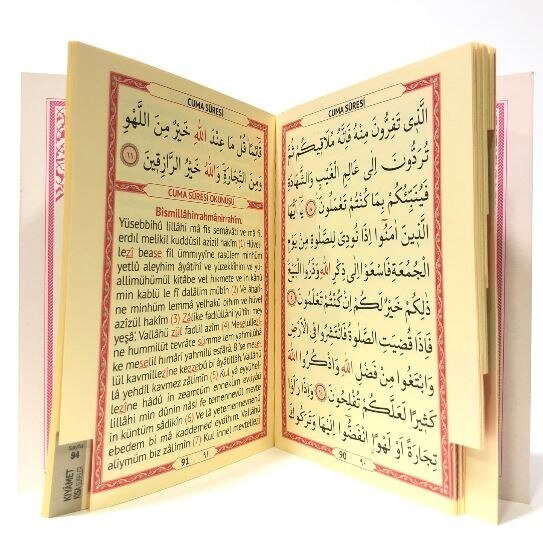 CUMA SÛRESİ
اَلَّذ۪ي تَفِرُّونَ مِنْهُ فَاِنَّهُ مُلَاق۪يكُمْ ثُمَّ
تُرَدُّونَ اِلٰى عَالِمِ الْغَيْبِ وَالشَّهَادَةِ
فَيُنَبِّئُكُمْ بِمَا كُنْتُمْ تَعْمَلُونَ ﴿٨﴾ يَٓا اَيُّهَا
الَّذ۪ينَ اٰمَنُٓوا اِذَا نُودِيَ لِلصَّلٰوةِ مِنْ يَوْمِ
الْجُمُعَةِ فَاسْعَوْا اِلٰى ذِكْرِ اللّٰهِ وَذَرُوا الْبَيْعَ
ذٰلِكُمْ خَيْرٌ لَكُمْ اِنْ كُنْتُمْ تَعْلَمُونَ ﴿٩﴾
فَاِذَا قُضِيَتِ الصَّلٰوةُ فَانْتَشِرُوا فِي الْاَرْضِ
وَابْتَغُوا مِنْ فَضْلِ اللّٰهِ وَاذْكُرُوا اللّٰهَ
كَث۪يرًا لَعَلَّكُمْ تُفْلِحُونَ ﴿١٠﴾ وَاِذَا رَاَوْا
تِجَارَةً اَوْ لَهْوًا انْفَضُّٓوا اِلَيْهَا وَتَرَكُوكَ
90 ٩٠
CUMA SÛRESİ
قَٓائِمًا قُلْ مَا عِنْدَ اللّٰهِ خَيْرٌ مِنَ اللَّهْوِ
وَمِنَ التِّجَارَةِ وَاللّٰهُ خَيْرُ الرَّازِق۪ينَ ﴿١١﴾
CUMA SÛRESİ OKUNUŞU
Bismillâhirrahmânirrahîm.
Yüsebbihü lillâhi mâ fis semâvâti ve mâ fil
erdıl melikil kuddûsil azîzil hakîm (1) Hüvel
lezî bease fil ümmiyyîne rasûlem minhüm
yetlû aleyhim âyâtihî ve yüzekkîhim ve yü-
allimühümül kitâbe vel hikmete ve in kânû
min kablü le fî dalâlim mübîn (2) Ve âhari-
ne minhüm lemmâ yelhakû bihim ve hüvel
azîzül hakîm (3) Zâlike fadlüllâhi yü'tîhi mey
yeşâ'. Vallâhü zül fadlil azîm (4) Meselüllezî-
ne hummilüt tevrâte sümme lem yahmilûhâ
ke meselil hımâri yahmilü esfârâ. Bi'se mese-
lül kavmillezîne kezzebû bi âyâtillâh. Vallâhü
lâ yehdil kavmez zâlimîn (5) Kul yâ eyyühel-
lezîne hâdû in zeamtüm enneküm evliyâü
lillâhi min dûnin nâsi fe temennevül mevte
in küntüm sâdikîn (6) Ve lâ yetemennevnehû
ebedem bi mâ kaddemed eydîhim. Vallâhü
aliymüm biz zâlimîn (7) Kul innel mevtellezî
91 ٩١
Sayfa
94
KIYÂMET
KISA SÛRELER